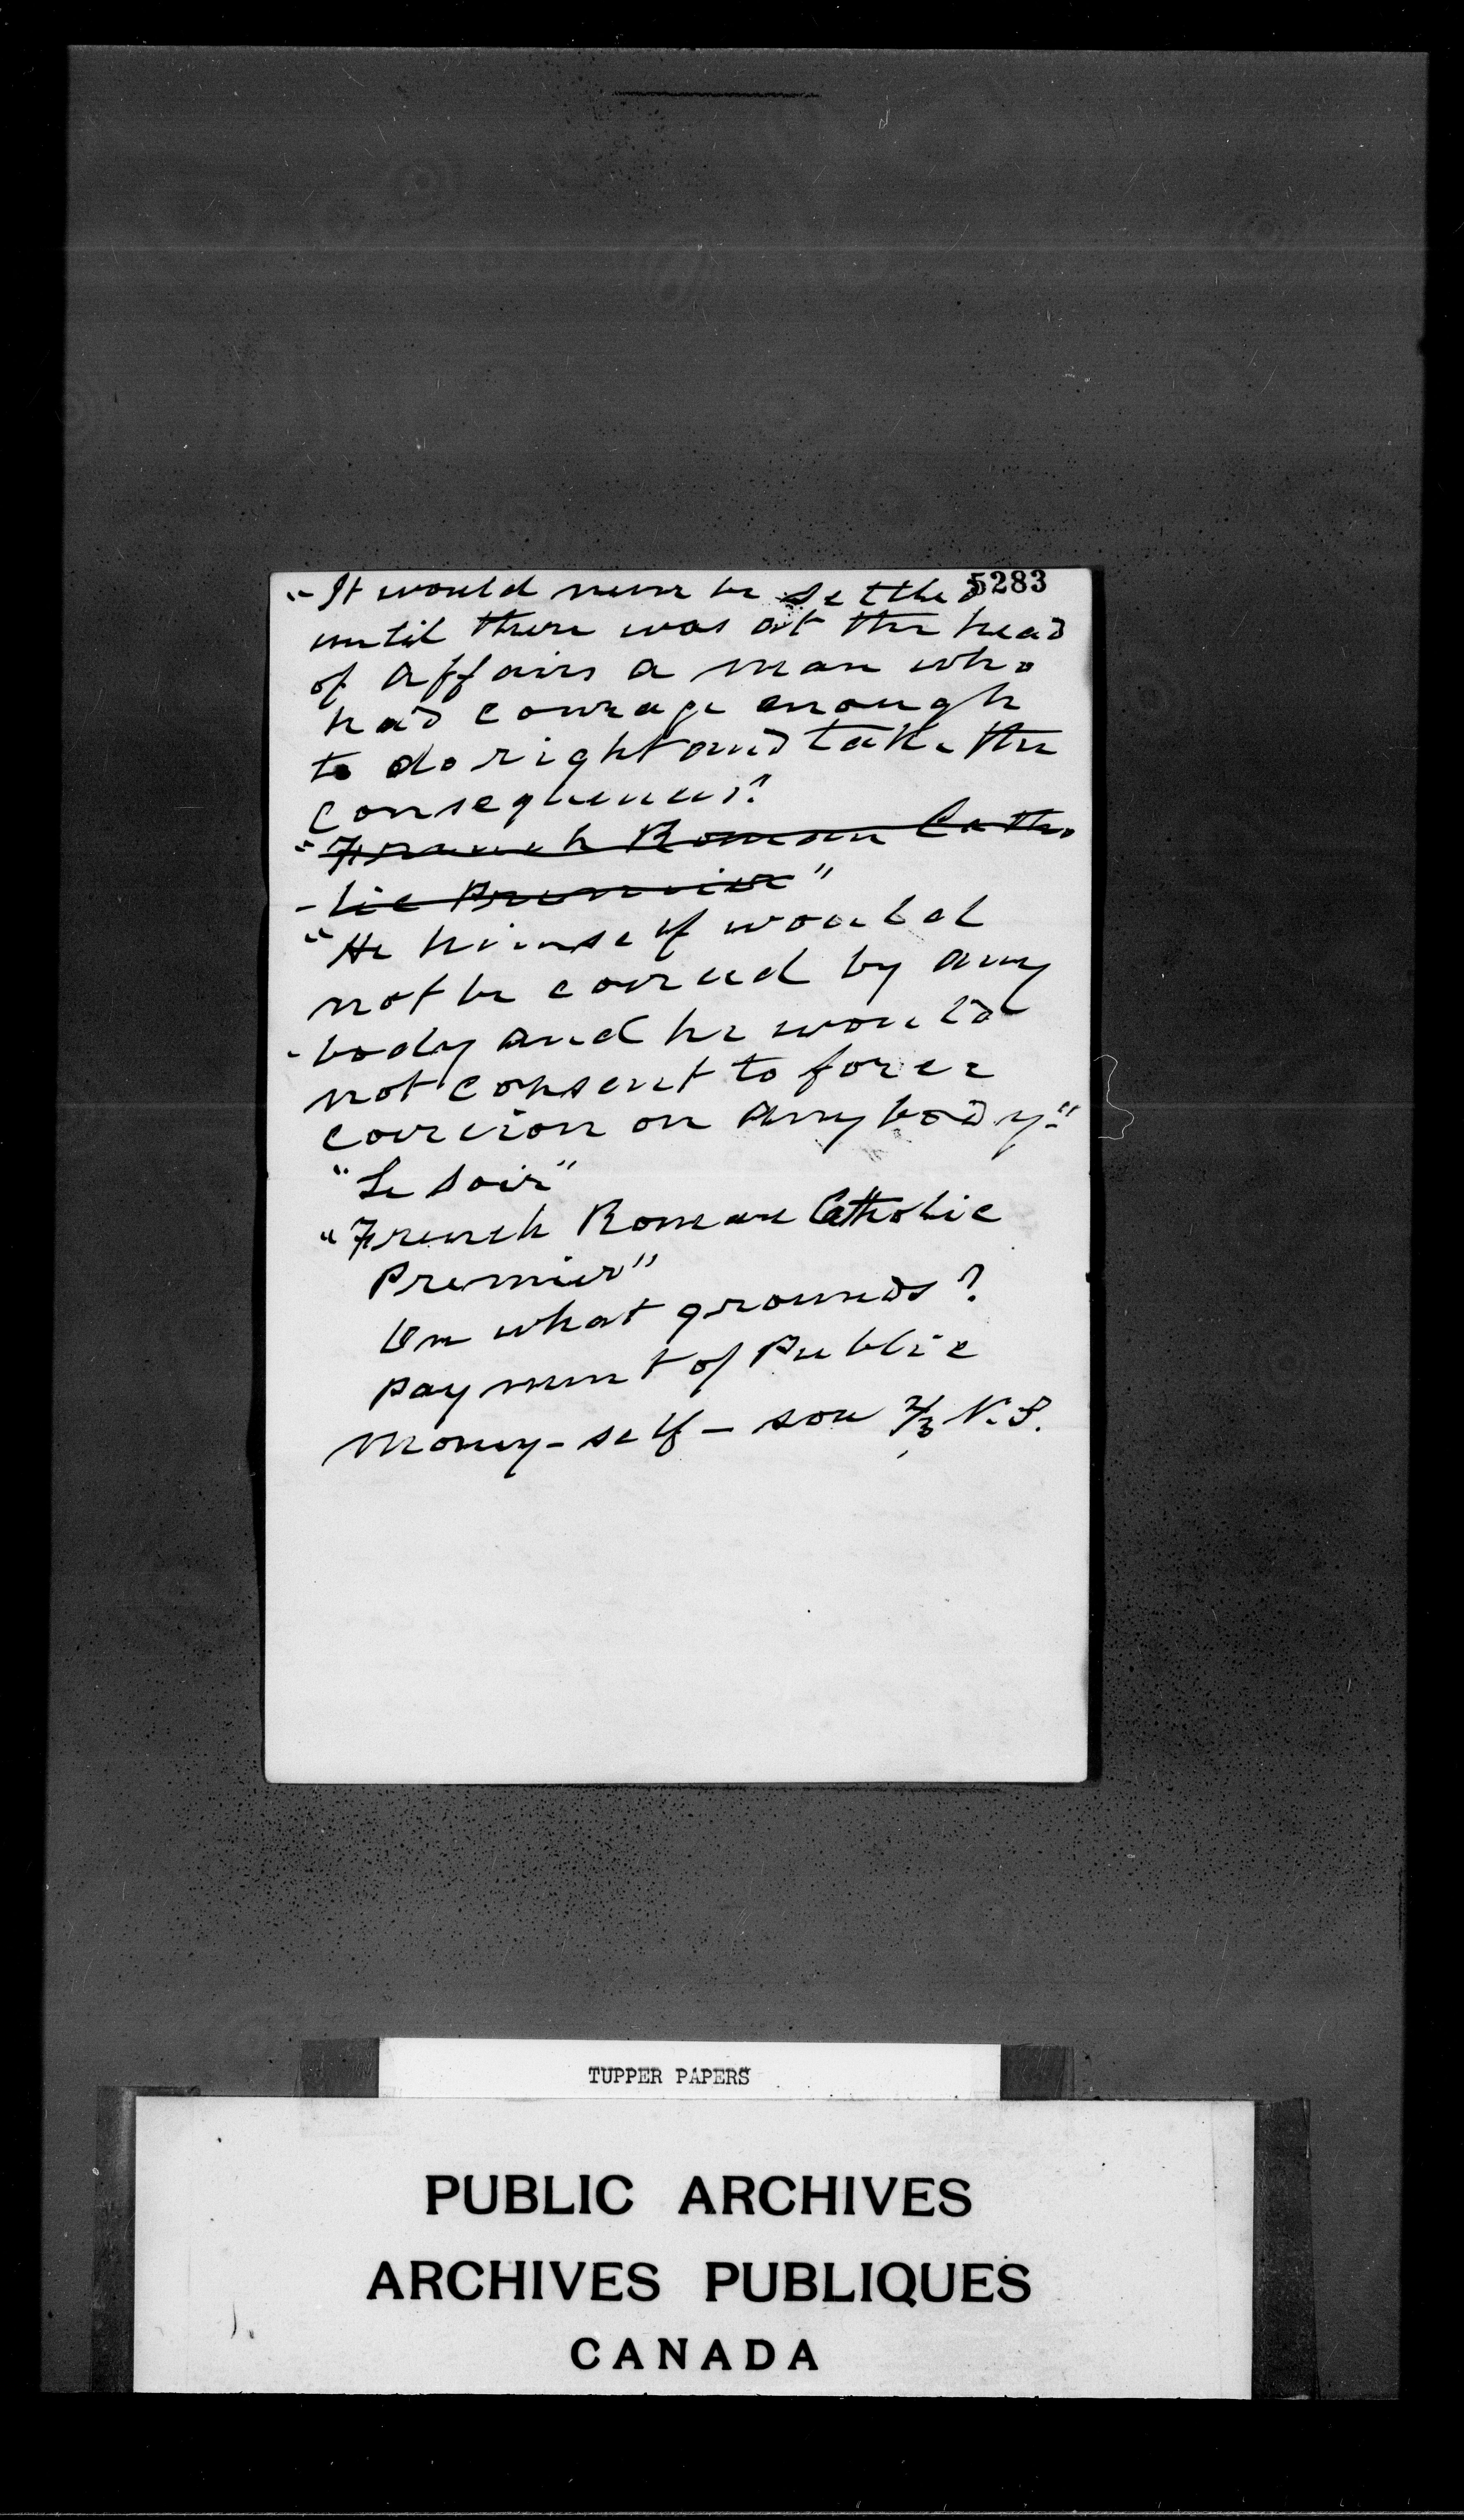 5283
"It would never be settled
until there was at the head
of affairs a man who
had courage enough
to do right and take the
consequences."
"French Roman Catho
-lic Premier"
"He himself would
not be coerced by any
-body and he would
not consent to force
coercion on anybody."
"Le Soir"
"French Roman Catholic
Premier"
On what grounds?
payment of Public
money - self - son 2/3 N.S.
TUPPER PAPERS
PUBLIC ARCHIVES
ARCHIVES PUBLIQUES
CANADA